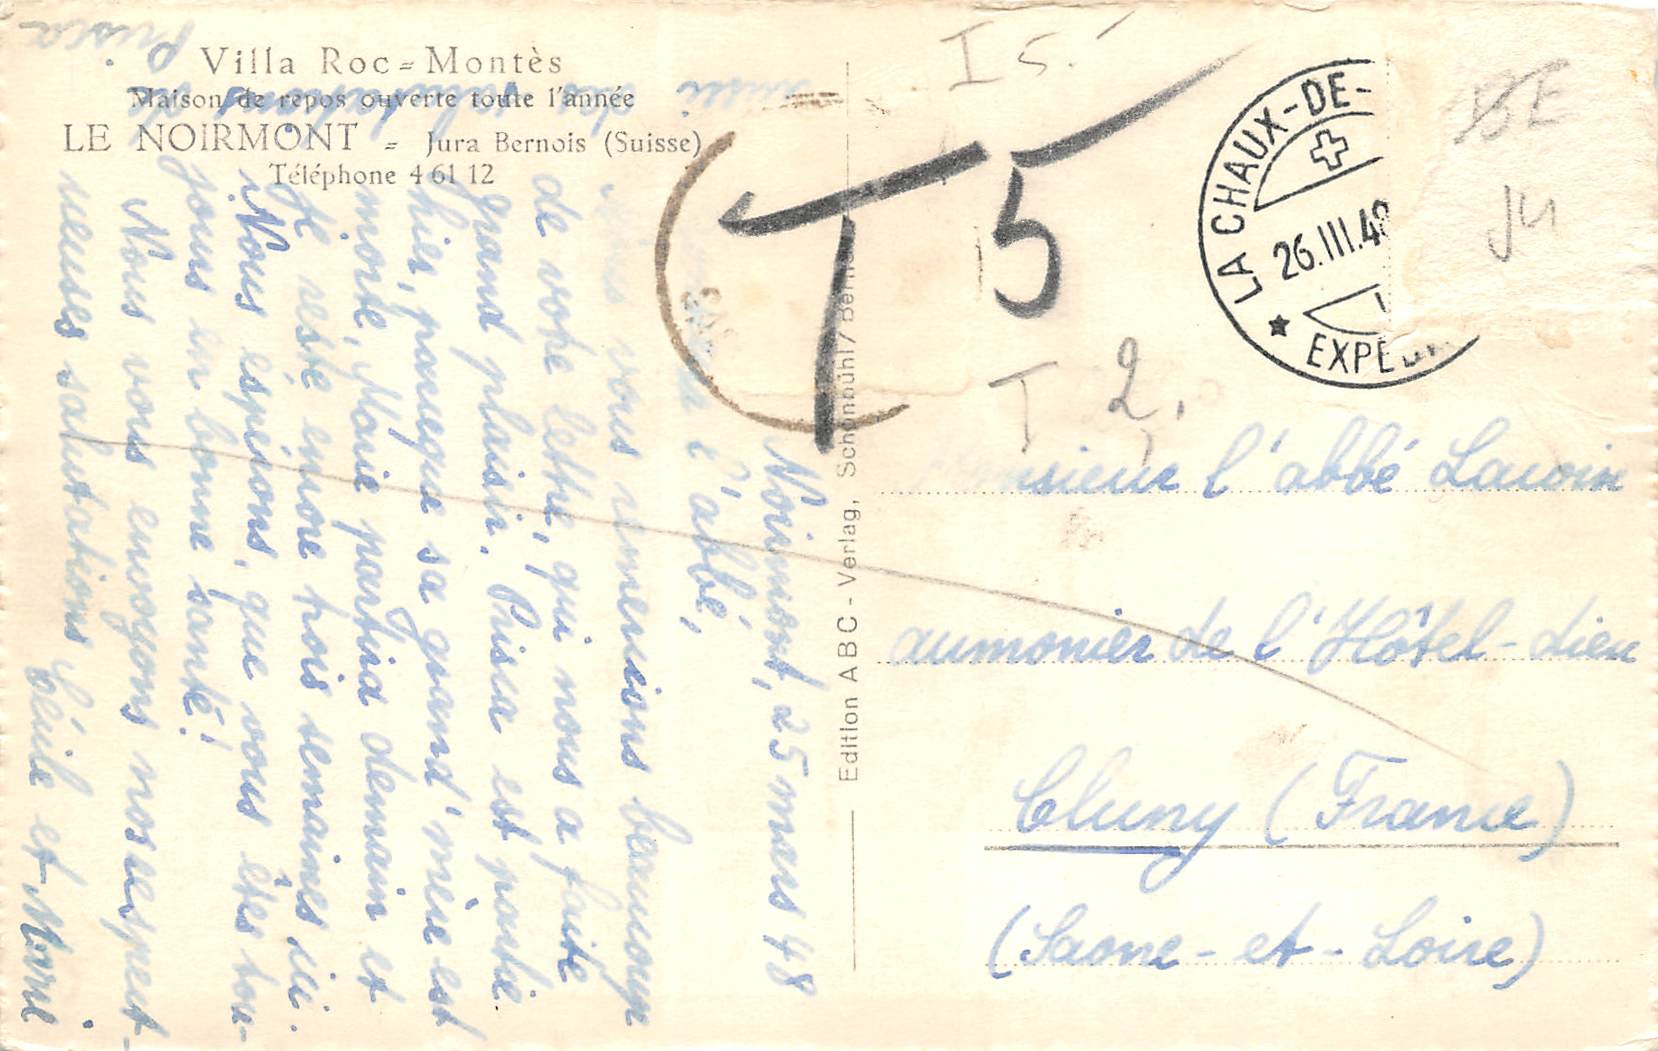 Villa Roc-Montès
Maison de repos ouverte toute l'année
LE NOIRMONT - Jura Bernois (Suisse)
Téléphone 4 61 12
Noirmont, 25 mars 48
l'abbé,
vous remercions beaucoup
de votre lettre, qui nous a faite
grand plaisir. Prisca est partie
hier, parceque sa grand'mère est
morte, Marie partira demain et
je reste encore trois semaines ici.
Nous espérons, que vous êtes tou-
jours en bonne santé!
Nous vous envoyons nos respect-
ueuses salutations Cécile et Marie
Prisca
Edition ABC - Verlag, Schönbühl / Bern
I 5.
T 5
T 2,
LA CHAUX-DE-
26.III.48
EXPED
J4
Monsieur l'abbé Lavoin
aumonier de l'Hôtel-dieu
Cluny (France)
(Saone-et-Loire)